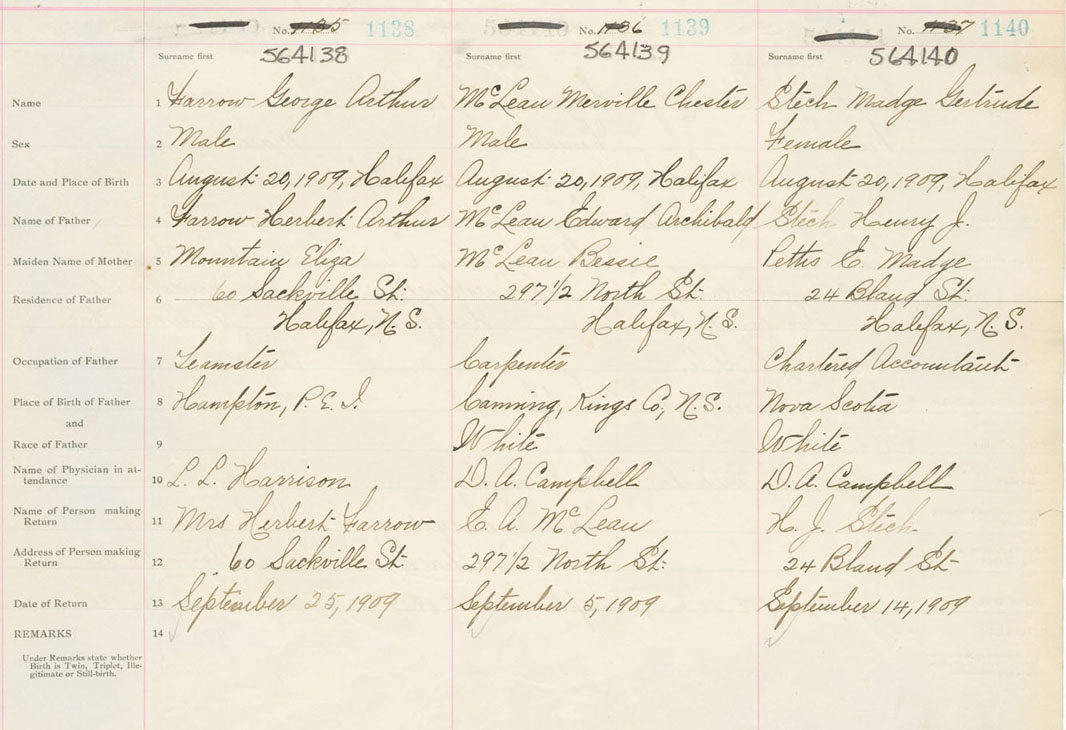 No. 1135 1138 No. 1136 1139 No. 1137 1140
Surname first 564138 Surname first 564139 Surname first 564140
Name 1 Farrow George Arthur McLean Merville Chester Stech Madge Gertrude
Sex 2 Male Male Female
Date and Place of Birth 3 August 20, 1909, Halifax August 20, 1909, Halifax August 20, 1909, Halifax
Name of Father 4 Farrow Herbert Arthur McLean Edward Archibald Stech Henry J.
Maiden Name of Mother 5 Mountain Eliza McLean Bessie E. Madge
Residence of Father 6 60 Sackville St. 297 1/2 North St. 24 Bland St.
Halifax, N.S. Halifax, N.S. Halifax, N.S.
Occupation of Father 7 Teamster Carpenter Chartered Accountant
Place of Birth of Father 8 Hampton, P.E.I. Canning, Kings Co., N.S. Nova Scotia
and
Race of Father 9 White White
Name of Physician in at-
tendance 10 L. L. Harrison D. A. Campbell D. A. Campbell
Name of Person making
Return 11 Mrs Herbert Farrow E. A. McLean H. J. Stech
Address of Person making
Return 12 60 Sackville St. 297 1/2 North St. 24 Bland St
Date of Return 13 September 25, 1909 September 5, 1909 September 14, 1909
REMARKS 14
Under Remarks state whether
Birth is Twin, Triplet, Ille-
gitimate or Still-birth.